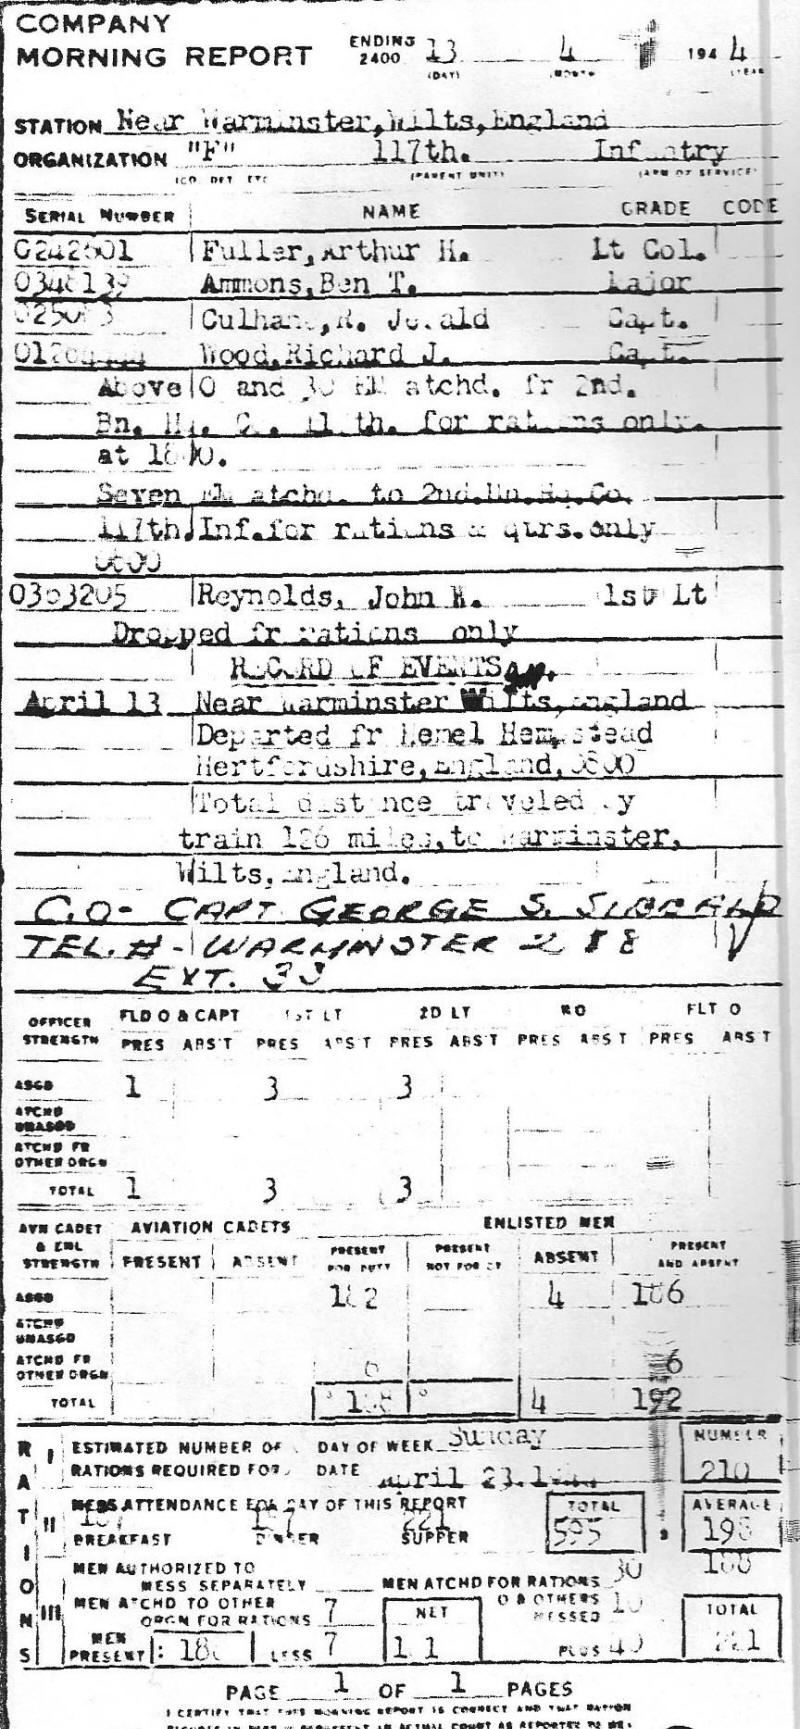 COMPANY
MORNING REPORT ENDING 2400 13 4 194 4
(DAY) (MONTH) (YEAR)
STATION Near Warminster,Wilts,England
ORGANIZATION "F" 117th. Infantry
(CO. DET. ETC (PARENT UNIT) (ARM OF SERVICE)
SERIAL NUMBER NAME GRADE CODE
Fuller,Arthur H. Lt Col.
0348139 Ammons,Ben T. Major
R. Jerald Capt.
Wood,Richard J. Capt.
Above O and 30 EM atchd. fr 2nd.
Bn. Hq. Co. 117th. for rations only.
at 1800.
Seven EM atchd. to 2nd.Bn.Hq.Co.
117th.Inf.for rations & qtrs.only
0600
0363205 Reynolds, John W. 1st Lt
Dropped fr rations only
RECORD OF EVENTS
April 13 Near Warminster Wilts,England
Departed fr Hemel Hempstead
Hertfordshire,England,0800
Total distance traveled by
train 126 miles,to Warminster,
Wilts,England.
C.O- CAPT GEORGE S. SIBBALD
TEL.#-WARMINSTER 288
EXT. 33
OFFICER STRENGTH FLD O & CAPT 1ST LT 2D LT WO FLT O
PRES ABS'T PRES ABS'T PRES ABS'T PRES ABS'T PRES ABS'T
ASGD 1 3 3
ATCHD UNASGD
ATCHD FR OTHER ORGN
TOTAL 1 3 3
AVN CADET & ENL STRENGTH AVIATION CADETS ENLISTED MEN
PRESENT ABSENT PRESENT FOR DUTY PRESENT NOT FOR DY ABSENT PRESENT AND ABSENT
ASGD 182 4 186
ATCHD UNASGD
ATCHD FR OTHER ORGN 6 6
TOTAL 188 4 192
RATIONS
I ESTIMATED NUMBER OF DAY OF WEEK Sunday NUMBER
RATIONS REQUIRED FOR DATE April 23,1944 210
II MESS ATTENDANCE FOR DAY OF THIS REPORT TOTAL AVERAGE
187 187 221 595 198
BREAKFAST DINNER SUPPER
188
III MEN AUTHORIZED TO MESS SEPARATELY MEN ATCHD FOR RATIONS 30
MEN ATCHD TO OTHER ORGN FOR RATIONS 7 NET O & OTHERS MESSED 10 TOTAL
MEN PRESENT 188 LESS 7 181 PLUS 40 221
PAGE 1 OF 1 PAGES
I CERTIFY THAT THIS MORNING REPORT IS CORRECT AND THAT RATION